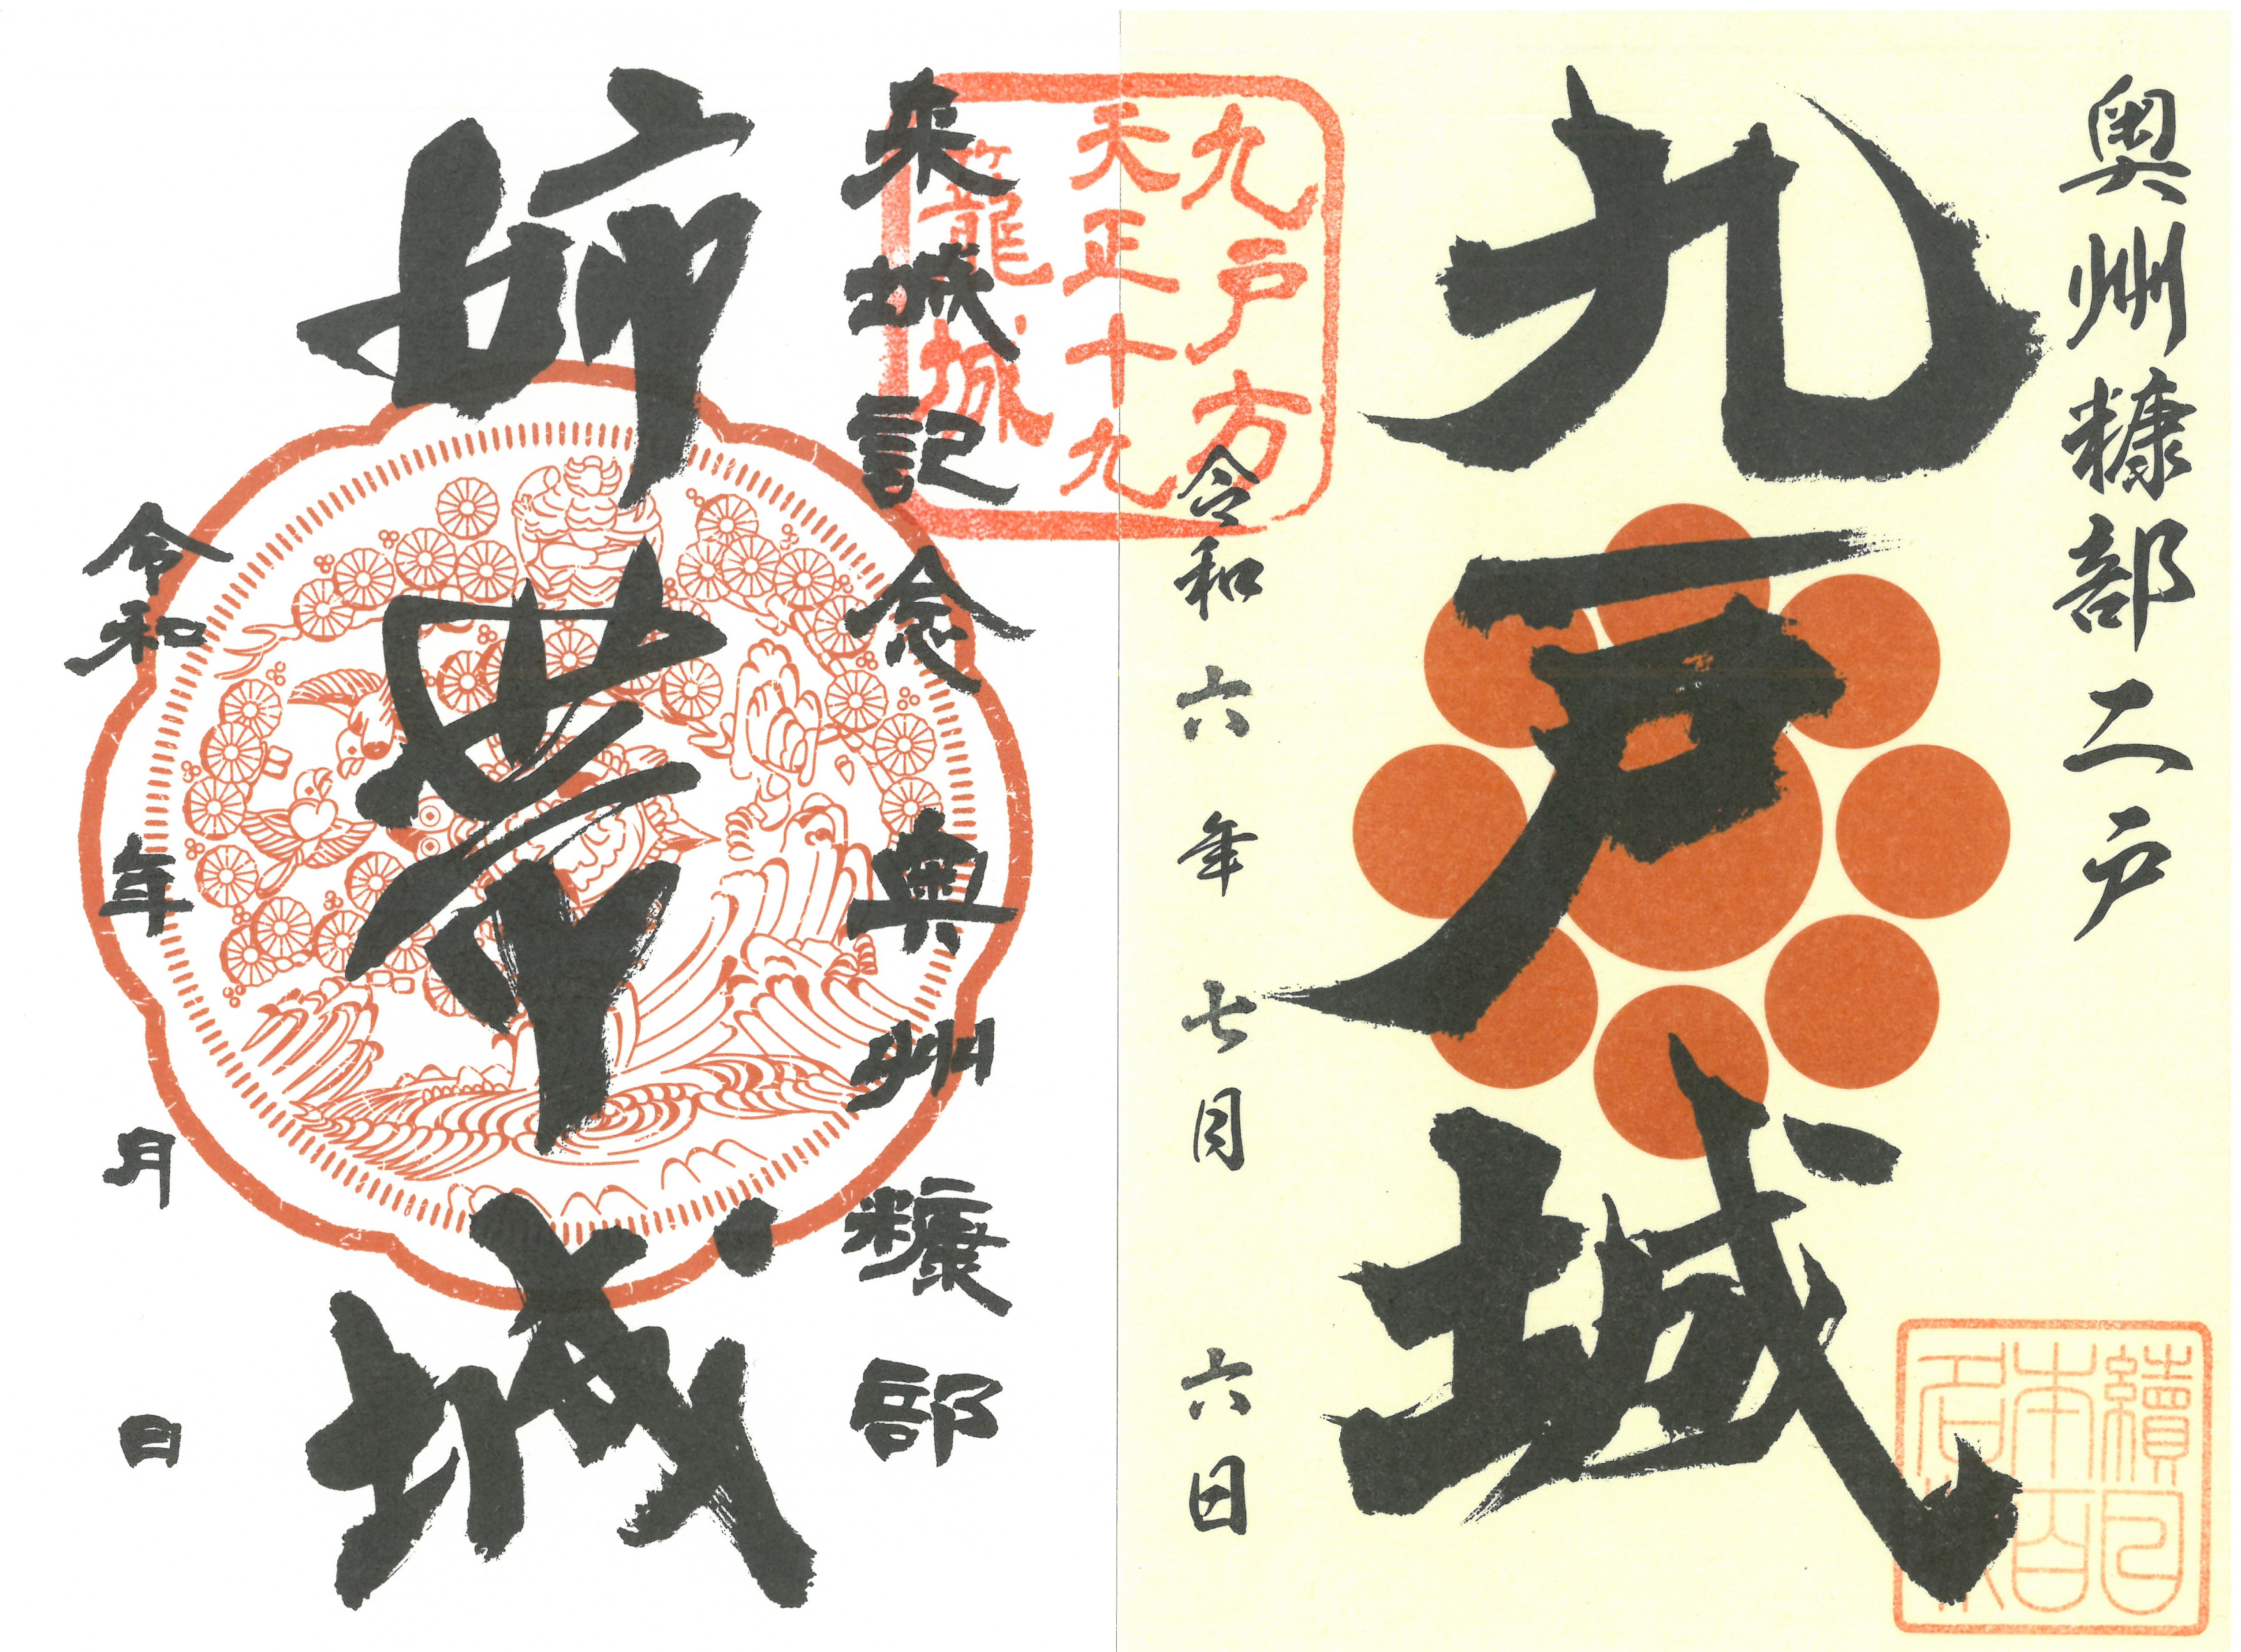 奥州糠部二戸
九戸城
續日本百名城
令和六年七月六日
九戸方
天正十九
籠城
来城記念奥州糠部
姉帯城
令和 年 月 日